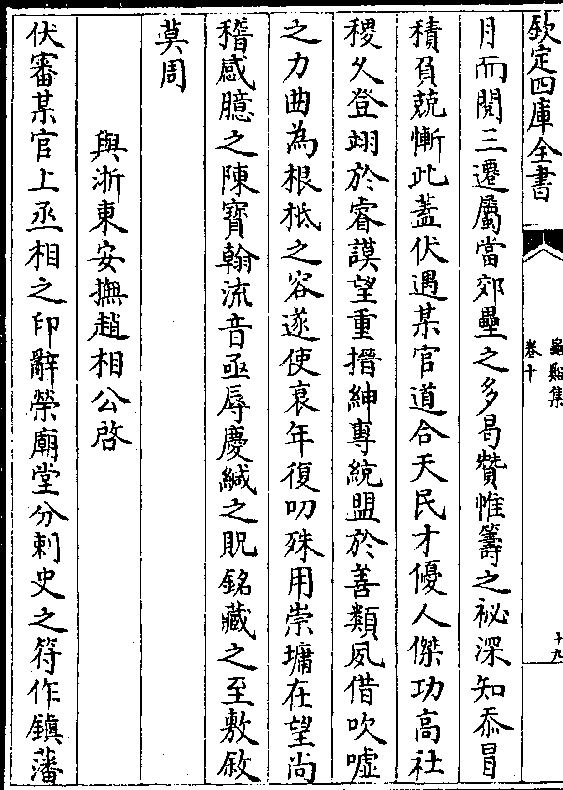 欽定四庫全書
龜谿集
卷十
十九
月而閱三遷屬當郊壘之多曷贊惟籌之祕深知忝冒
積負兢慚此蓋伏遇某官道合天民才優人傑功高社
稷久登翊於睿謨望重搢紳專統盟於善類夙借吹噓
之力曲為根柢之容遂使衰年復叨殊用崇墉在望尚
稽感臆之陳寳翰流音亟辱慶緘之貺銘藏之至敷敘
莫周
與浙東安撫趙相公啓
伏審某官上丞相之印辭榮廟堂分刺史之符作鎮藩